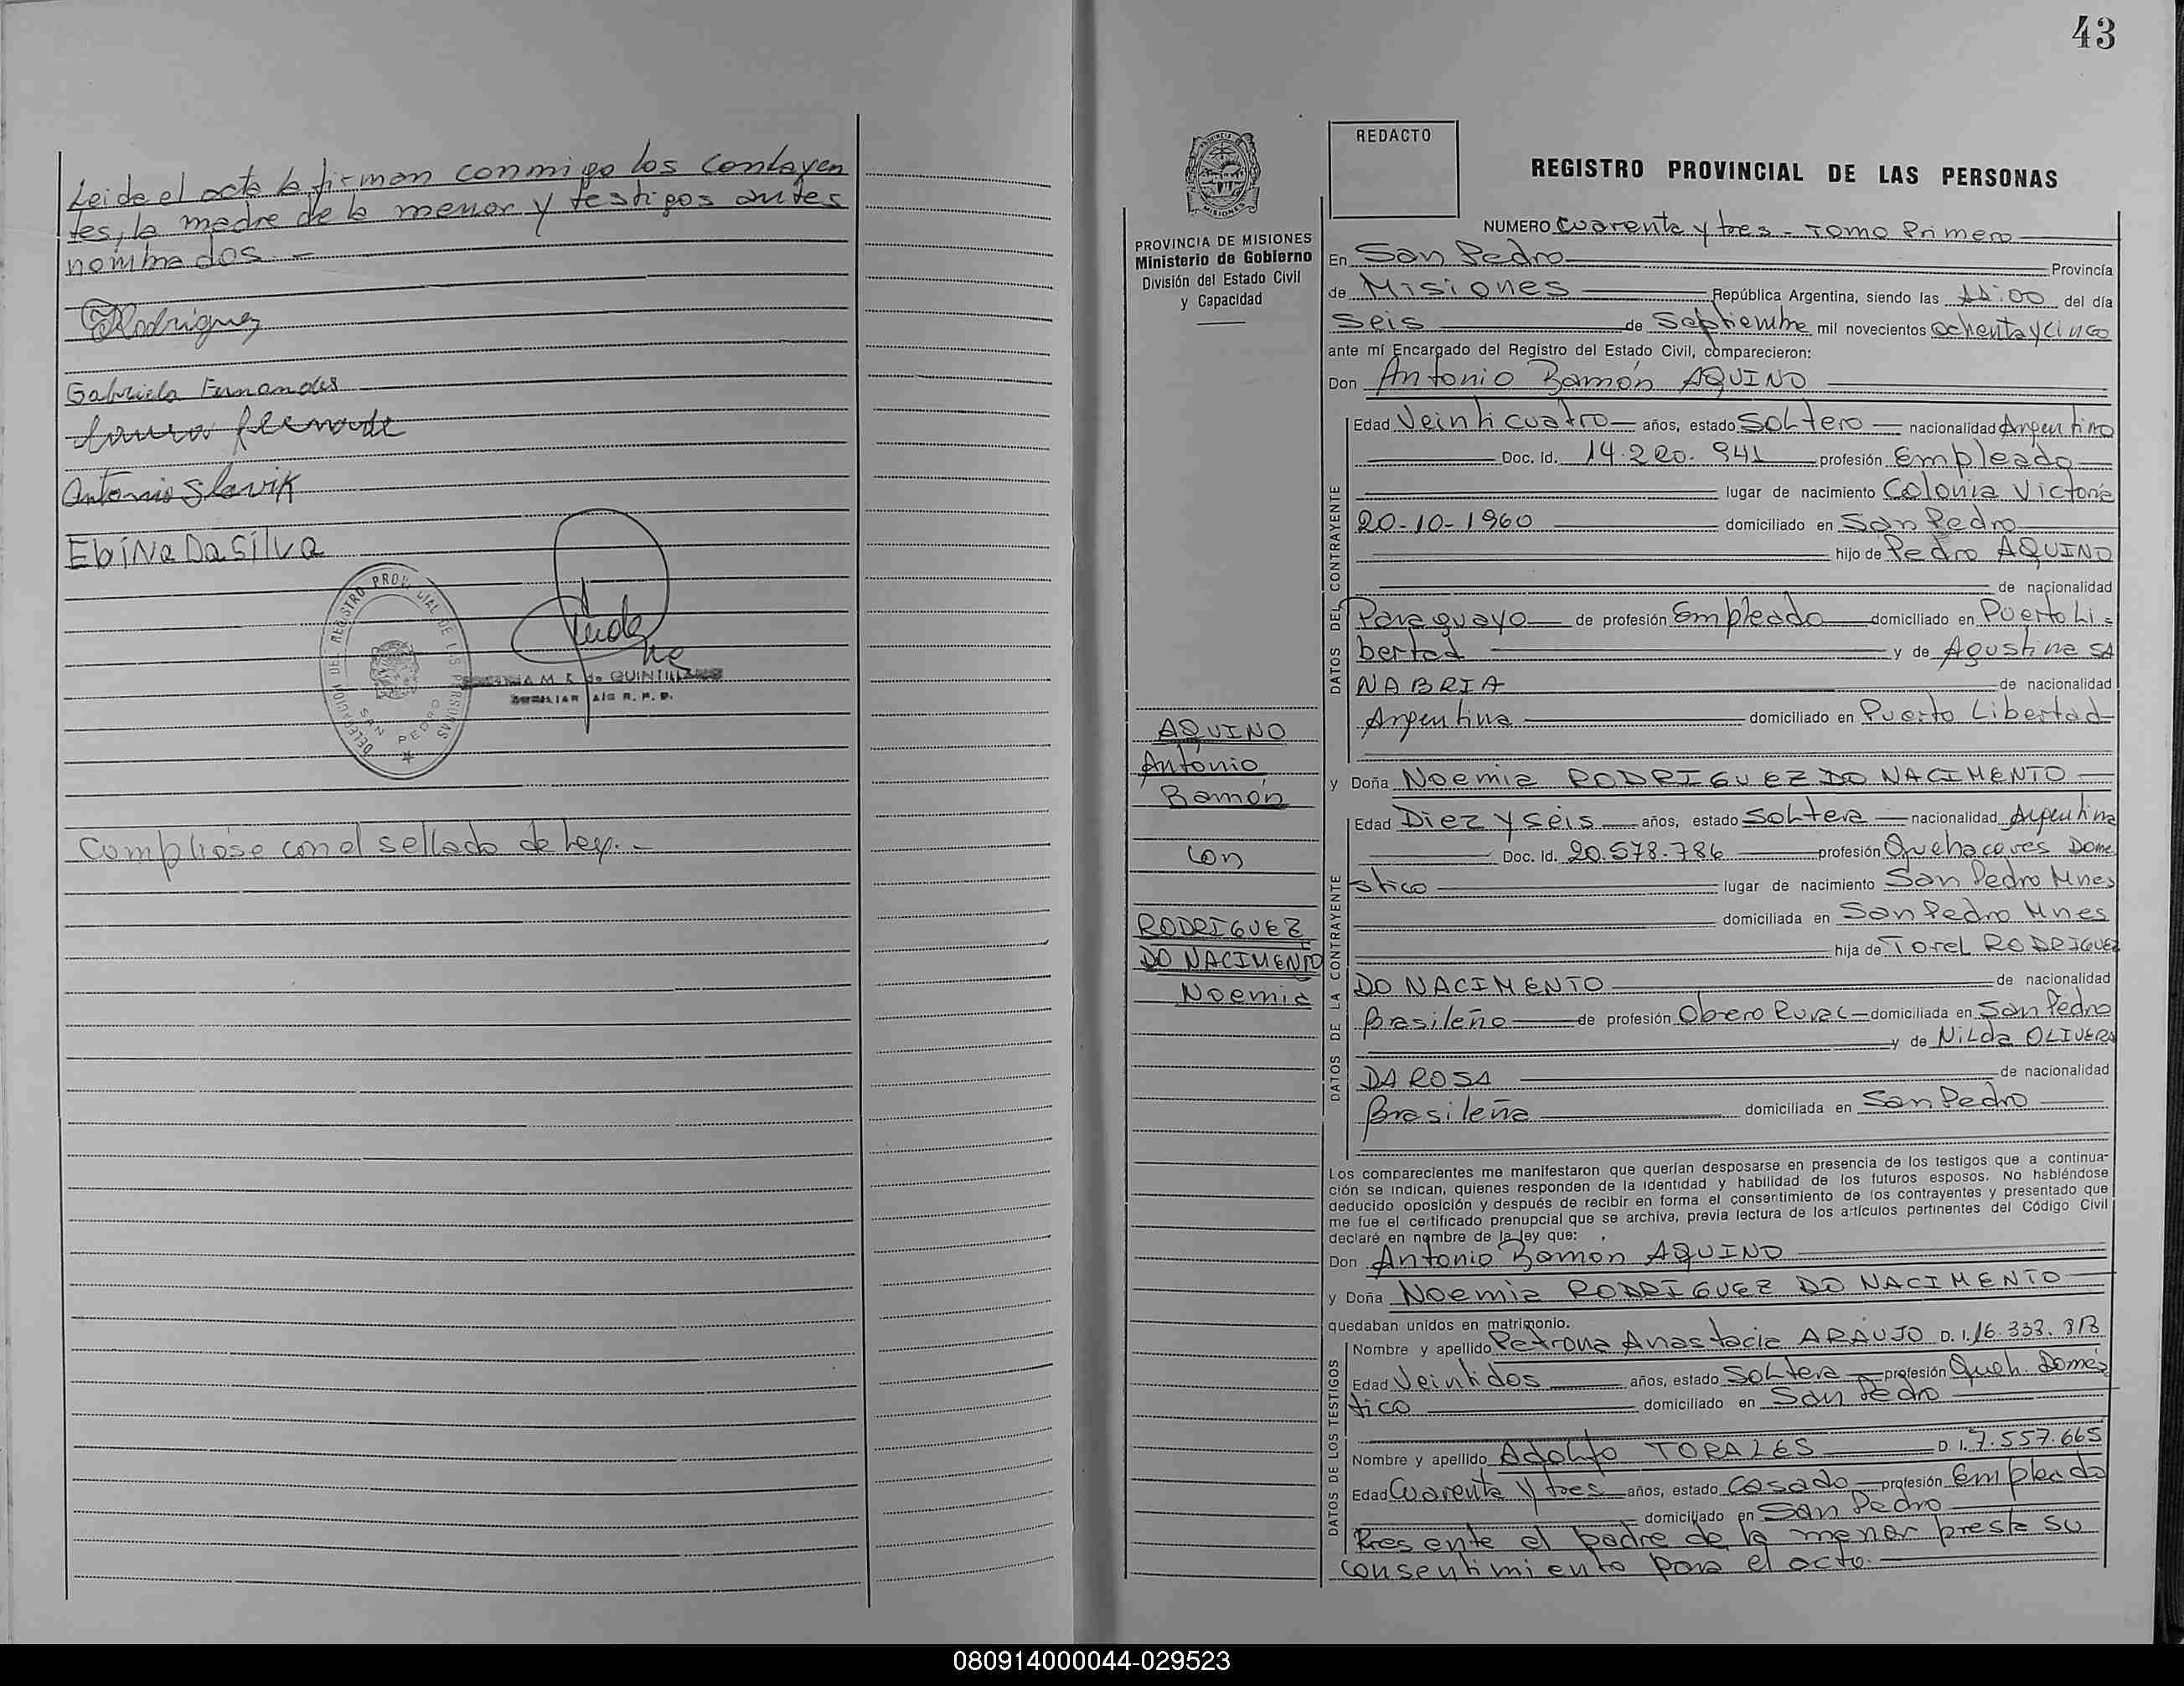 Leide el acta la firman conmigo los contayen
tes, la madre de la menor y testigos antes
nombrados. -
Rodriguez
Gabriela Fernandes
Antonio Slavik
Ebina Da Silva
DELEGACION DEL REGISTRO PROVINCIAL DE LAS PERSONAS
SAN PEDRO
M. E. de QUINTINO
AUXILIAR A/C R. P. P.
Cumpliose con el sellado de ley. -
43
REDACTO
REGISTRO PROVINCIAL DE LAS PERSONAS
PROVINCIA
MISIONES
PROVINCIA DE MISIONES
Ministerio de Gobierno
División del Estado Civil
y Capacidad
AQUINO
Antonio
Ramón
con
RODRIGUEZ
DO NACIMENTO
Noemia
NUMERO Cuarenta y tres - Tomo Primero
En San Pedro Provincia
de Misiones República Argentina, siendo las 11:00 del día
Seis de Septiembre mil novecientos ochenta y cinco
ante mí Encargado del Registro del Estado Civil, comparecieron:
Don Antonio Ramón AQUINO
DATOS DEL CONTRAYENTE
Edad Veinticuatro años, estado Soltero nacionalidad Argentino
Doc. Id. 14.220.941 profesión Empleado
lugar de nacimiento Colonia Victoria
20-10-1960 domiciliado en San Pedro
hijo de Pedro AQUINO
de nacionalidad
Paraguayo de profesión Empleado domiciliado en Puerto Li=
bertad y de Agustina SA
NABRIA de nacionalidad
Argentina domiciliado en Puerto Libertad
y Doña Noemia RODRIGUEZ DO NACIMENTO
DATOS DE LA CONTRAYENTE
Edad Diez y seis años, estado Soltera nacionalidad Argentina
Doc. Id. 20.578.786 profesión Quehaceres Dome
stico lugar de nacimiento San Pedro Mnes
domiciliada en San Pedro Mnes
hija de Torel RODRIGUEZ
DO NACIMENTO de nacionalidad
Brasileño de profesión Obrero Rural domiciliada en San Pedro
y de Nilda OLIVERA
DA ROSA de nacionalidad
Brasileña domiciliada en San Pedro
Los comparecientes me manifestaron que querían desposarse en presencia de los testigos que a continua-
ción se indican, quienes responden de la identidad y habilidad de los futuros esposos. No habiéndose
deducido oposición y después de recibir en forma el consentimiento de los contrayentes y presentado que
me fue el certificado prenupcial que se archiva, previa lectura de los artículos pertinentes del Código Civil
declaré en nombre de la ley que:
Don Antonio Ramon AQUINO
y Doña Noemia RODRIGUEZ DO NACIMENTO
quedaban unidos en matrimonio.
DATOS DE LOS TESTIGOS
Nombre y apellido Petrona Anastacia ARAUJO D. I. 16.333.813
Edad Veintidos años, estado Soltera profesión Queh. Domes
tico domiciliado en San Pedro
Nombre y apellido Adolfo TORALES D. I. 7.557.665
Edad Cuarenta y tres años, estado Casado profesión Empleado
domiciliado en San Pedro
Presente el padre de la menor presta su
consentimiento para el acto.
080914000044-029523